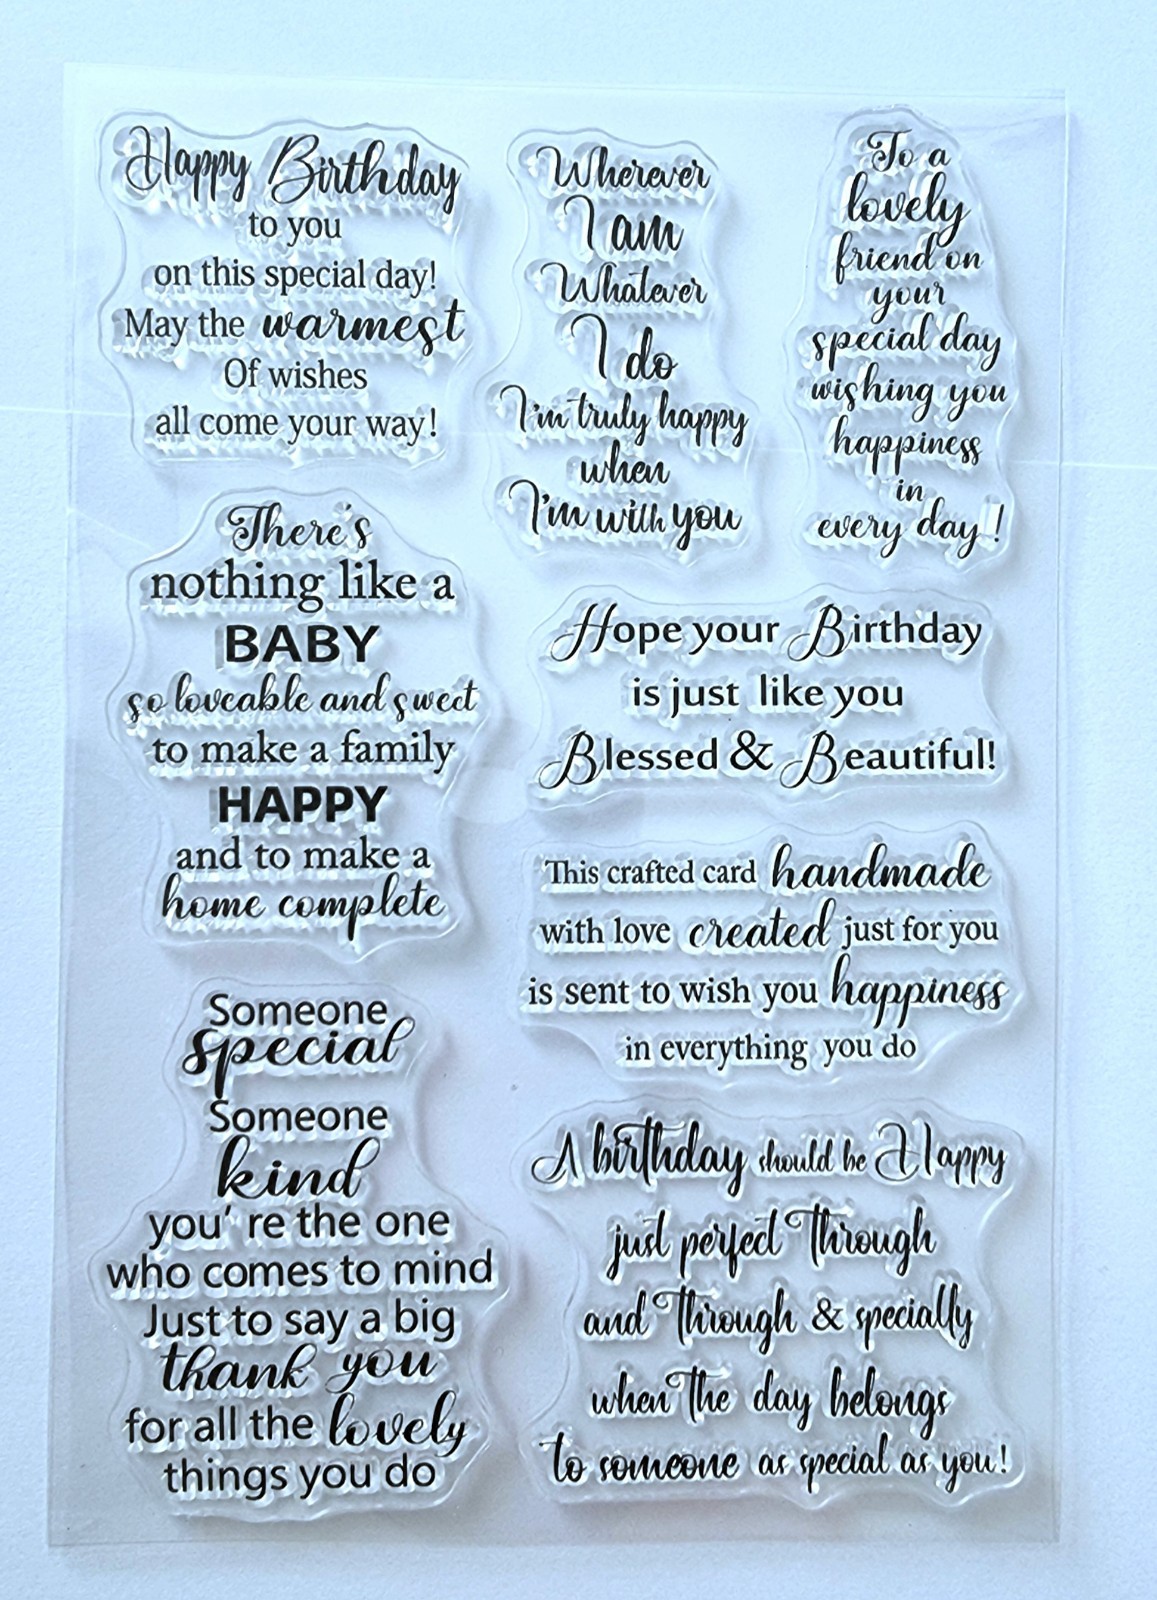 Happy Birthday
to you
on this special day!
May the warmest
Of wishes
all come your way!
Wherever
I am
Whatever
I do
I'm truly happy
when
I'm with you
To a
lovely
friend on
your
special day
wishing you
happiness
in
every day !
There's
nothing like a
BABY
so loveable and sweet
to make a family
HAPPY
and to make a
home complete
Hope your Birthday
is just like you
Blessed & Beautiful!
This crafted card handmade
with love created just for you
is sent to wish you happiness
in everything you do
Someone
special
Someone
kind
you' re the one
who comes to mind
Just to say a big
thank you
for all the lovely
things you do
A birthday should be Happy
just perfect Through
and Through & specially
when The day belongs
to someone as special as you!